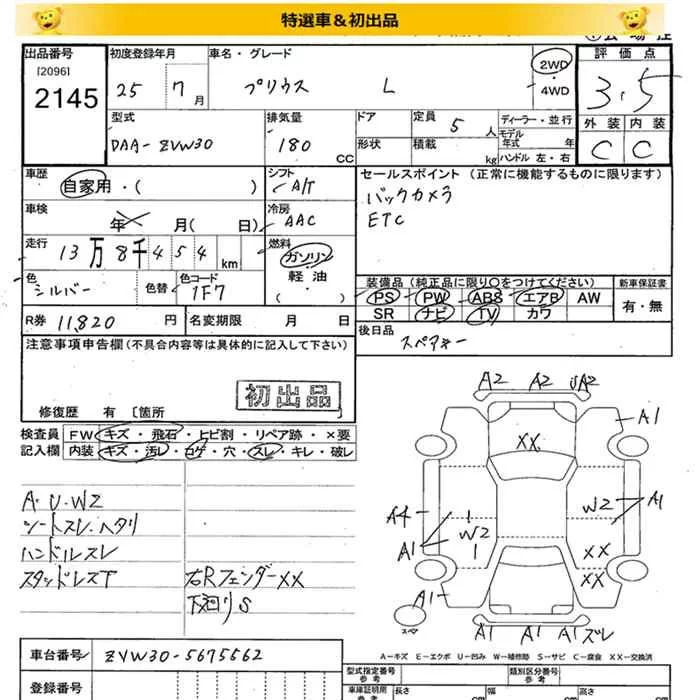 特選車＆初出品
出品番号 初度登録年月 車名・グレード 評価点
[2096]
2145 25 7月 プリウス L 2WD・4WD 3.5
型式 排気量 ドア 定員 ディーラー・並行 外装 内装
DAA-ZVW30 180 CC 形状 積載 5人 kg モデル年式 年 ハンドル 左・右 C C
車歴 自家用・( ) シフト A/T セールスポイント (正常に機能するものに限ります)
車検 年 月( 日) 冷房 AAC バックカメラ
ETC
走行 13万8千454 km 燃料 ガソリン 軽油 ( )
色 シルバー 色替 色コード 1F7 装備品 (純正品に限り○をつけてください) 新車保証書
PS PW ABS エアB AW 有・無
SR ナビ TV カワ
R券 11,820 円 名変期限 月 日 後日品
スペアキー
注意事項申告欄 (不具合内容等は具体的に記入して下さい)
初出品
修復歴 有 〔箇所
検査員 FW キズ・飛石・ヒビ割・リペア跡・×要
記入欄 内装 キズ・汚レ・コゲ・穴・スレ・キレ・破レ
A・U・W2
シートスレ・ヘタリ
ハンドルスレ
スタッドレスT 右RフェンダーXX
下廻りS
A2 A2 UA2
A1
XX
A4
W2
W2 A1
A1
XX
XX
A1
スペア
A1 A1 A1 ズレ
A－キズ E－エクボ U－凹み W－補修跡 S－サビ C－腐食 XX－交換済
車台番号 ZVW30-5675562
登録番号
型式指定番号 参考 類別区分番号 参考
車庫証明用 参考 長さ cm 幅 cm 高さ cm